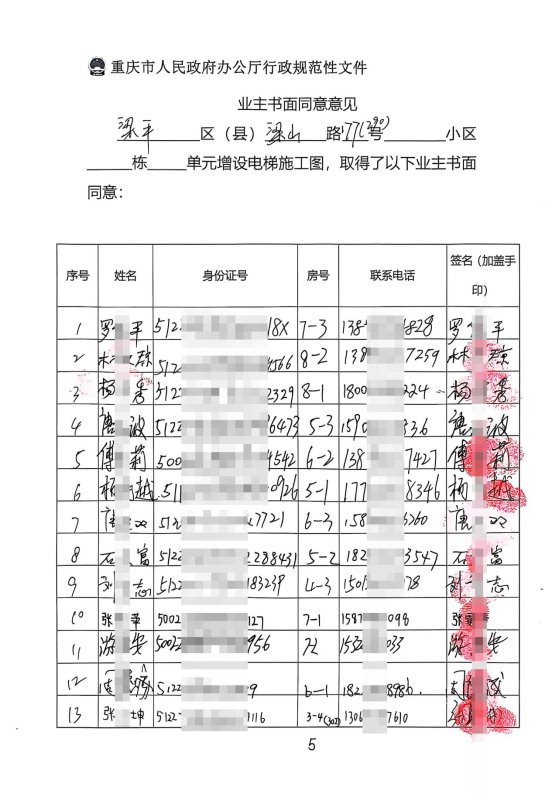 重庆市人民政府办公厅行政规范性文件
业主书面同意意见
梁平区（县）梁山路 号 小区
栋 单元增设电梯施工图，取得了以下业主书面
同意：
序号 姓名 身份证号 房号 联系电话 签名（加盖手印）
1 罗 平 512 18X 7-3 138 828 罗 平
2 林 琼 512 4566 8-2 138 7259 林 琼
3 杨 秀 512 2329 8-1 1800 224 杨 秀
4 唐 波 5122 36473 5-3 1590 336 唐 波
5 傅 莉 500 4542 6-2 138 7427 傅 莉
6 杨 越 511 0926 5-1 177 8346 杨 越
7 唐 双 512 7721 6-3 158 3260 唐 双
8 石 富 5122 2288431 5-2 182 3547 石 富
9 刘 志 5122 183239 4-3 1501 78 刘 志
10 张 苹 5002 127 7-1 1587 098 张
11 游 安 50022 956 1532 033 游 安
12 周 5122 9 6-1 182 8986 周 成
13 张 坤 5122 1116 3-4(302) 1306 7610
5